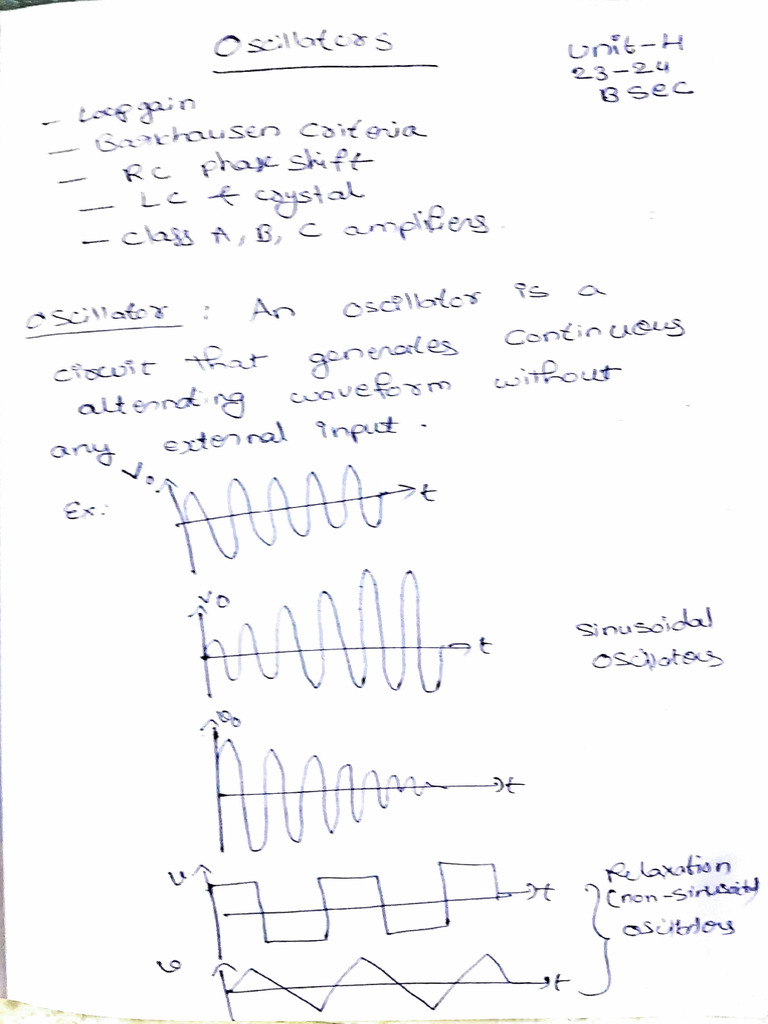 Oscillators
Unit-4
23-24
B sec
- Loop gain
- Barkhausen criteria
- RC phase shift
- LC & crystal
- Class A, B, C amplifiers.
Oscillator : An oscillator is a
circuit that generates continuous
alternating waveform without
any external input.
Ex:
Vo
t
Vo
t
Sinusoidal
oscillators
Vo
t
v
t
Relaxation
(non-sinusoidal)
oscillators
v
t